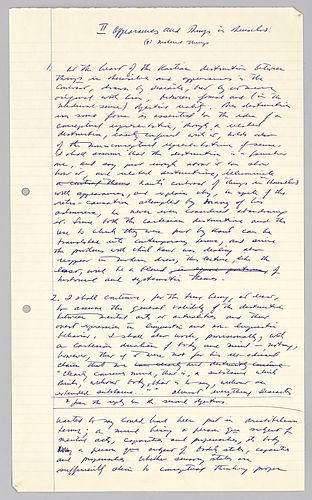 II Appearances and Things in themselves:
(A) Material Things
1. At the heart of the Kantian distinction between
things in themselves and appearances is the
contrast, drawn by Descartes, but by no means
original with him, between formal and (in the
mediaeval sense) objective reality. This distinction
in some form is essential to the idea of a
conceptual representation, though a related
distinction, easily confused with it, holds also
of the non-conceptual representations of sense.
I shall assume that the distinction is a familiar
one, and say just enough about it to show
how it, and related distinctions, illuminate
Kant's contrast of things in themselves
with appearances, and explain why, in spite of the
retro- causation attempted by many of his
admirers, he never even considered abandoning
it. Since both the Cartesian distinctions and the
use to which they were put by Kant can be
translated into contemporary terms, and since
the problems with which Kant was dealing also
reappear in modern dress, this lecture, like the
last, will be a blend of
historical and systematic themes.
2. I shall continue, for the time being, at least,
to assume the general validity of the distinction
between mental acts or actualities and their
overt expression in linguistic and non-linguistic
behavior. I shall also work, provisionally, with
a Cartesian dualism of body and mind — noting,
however, that if it were not for his ill-advised
claim that we
"clearly conceive mind, that is, a substance which
thinks, without body, that is to say, without an
extended substance..." almost everything Descartes
* from the reply to the second objections.
wanted to say could have been put in Aristotelian
terms; a mind being a person qua subject for
mental acts, capacities and propensities, its body
a person qua subject of bodily states, capacities
and propensities. Whether sensory states are
sufficiently akin to conceptual thinking proper